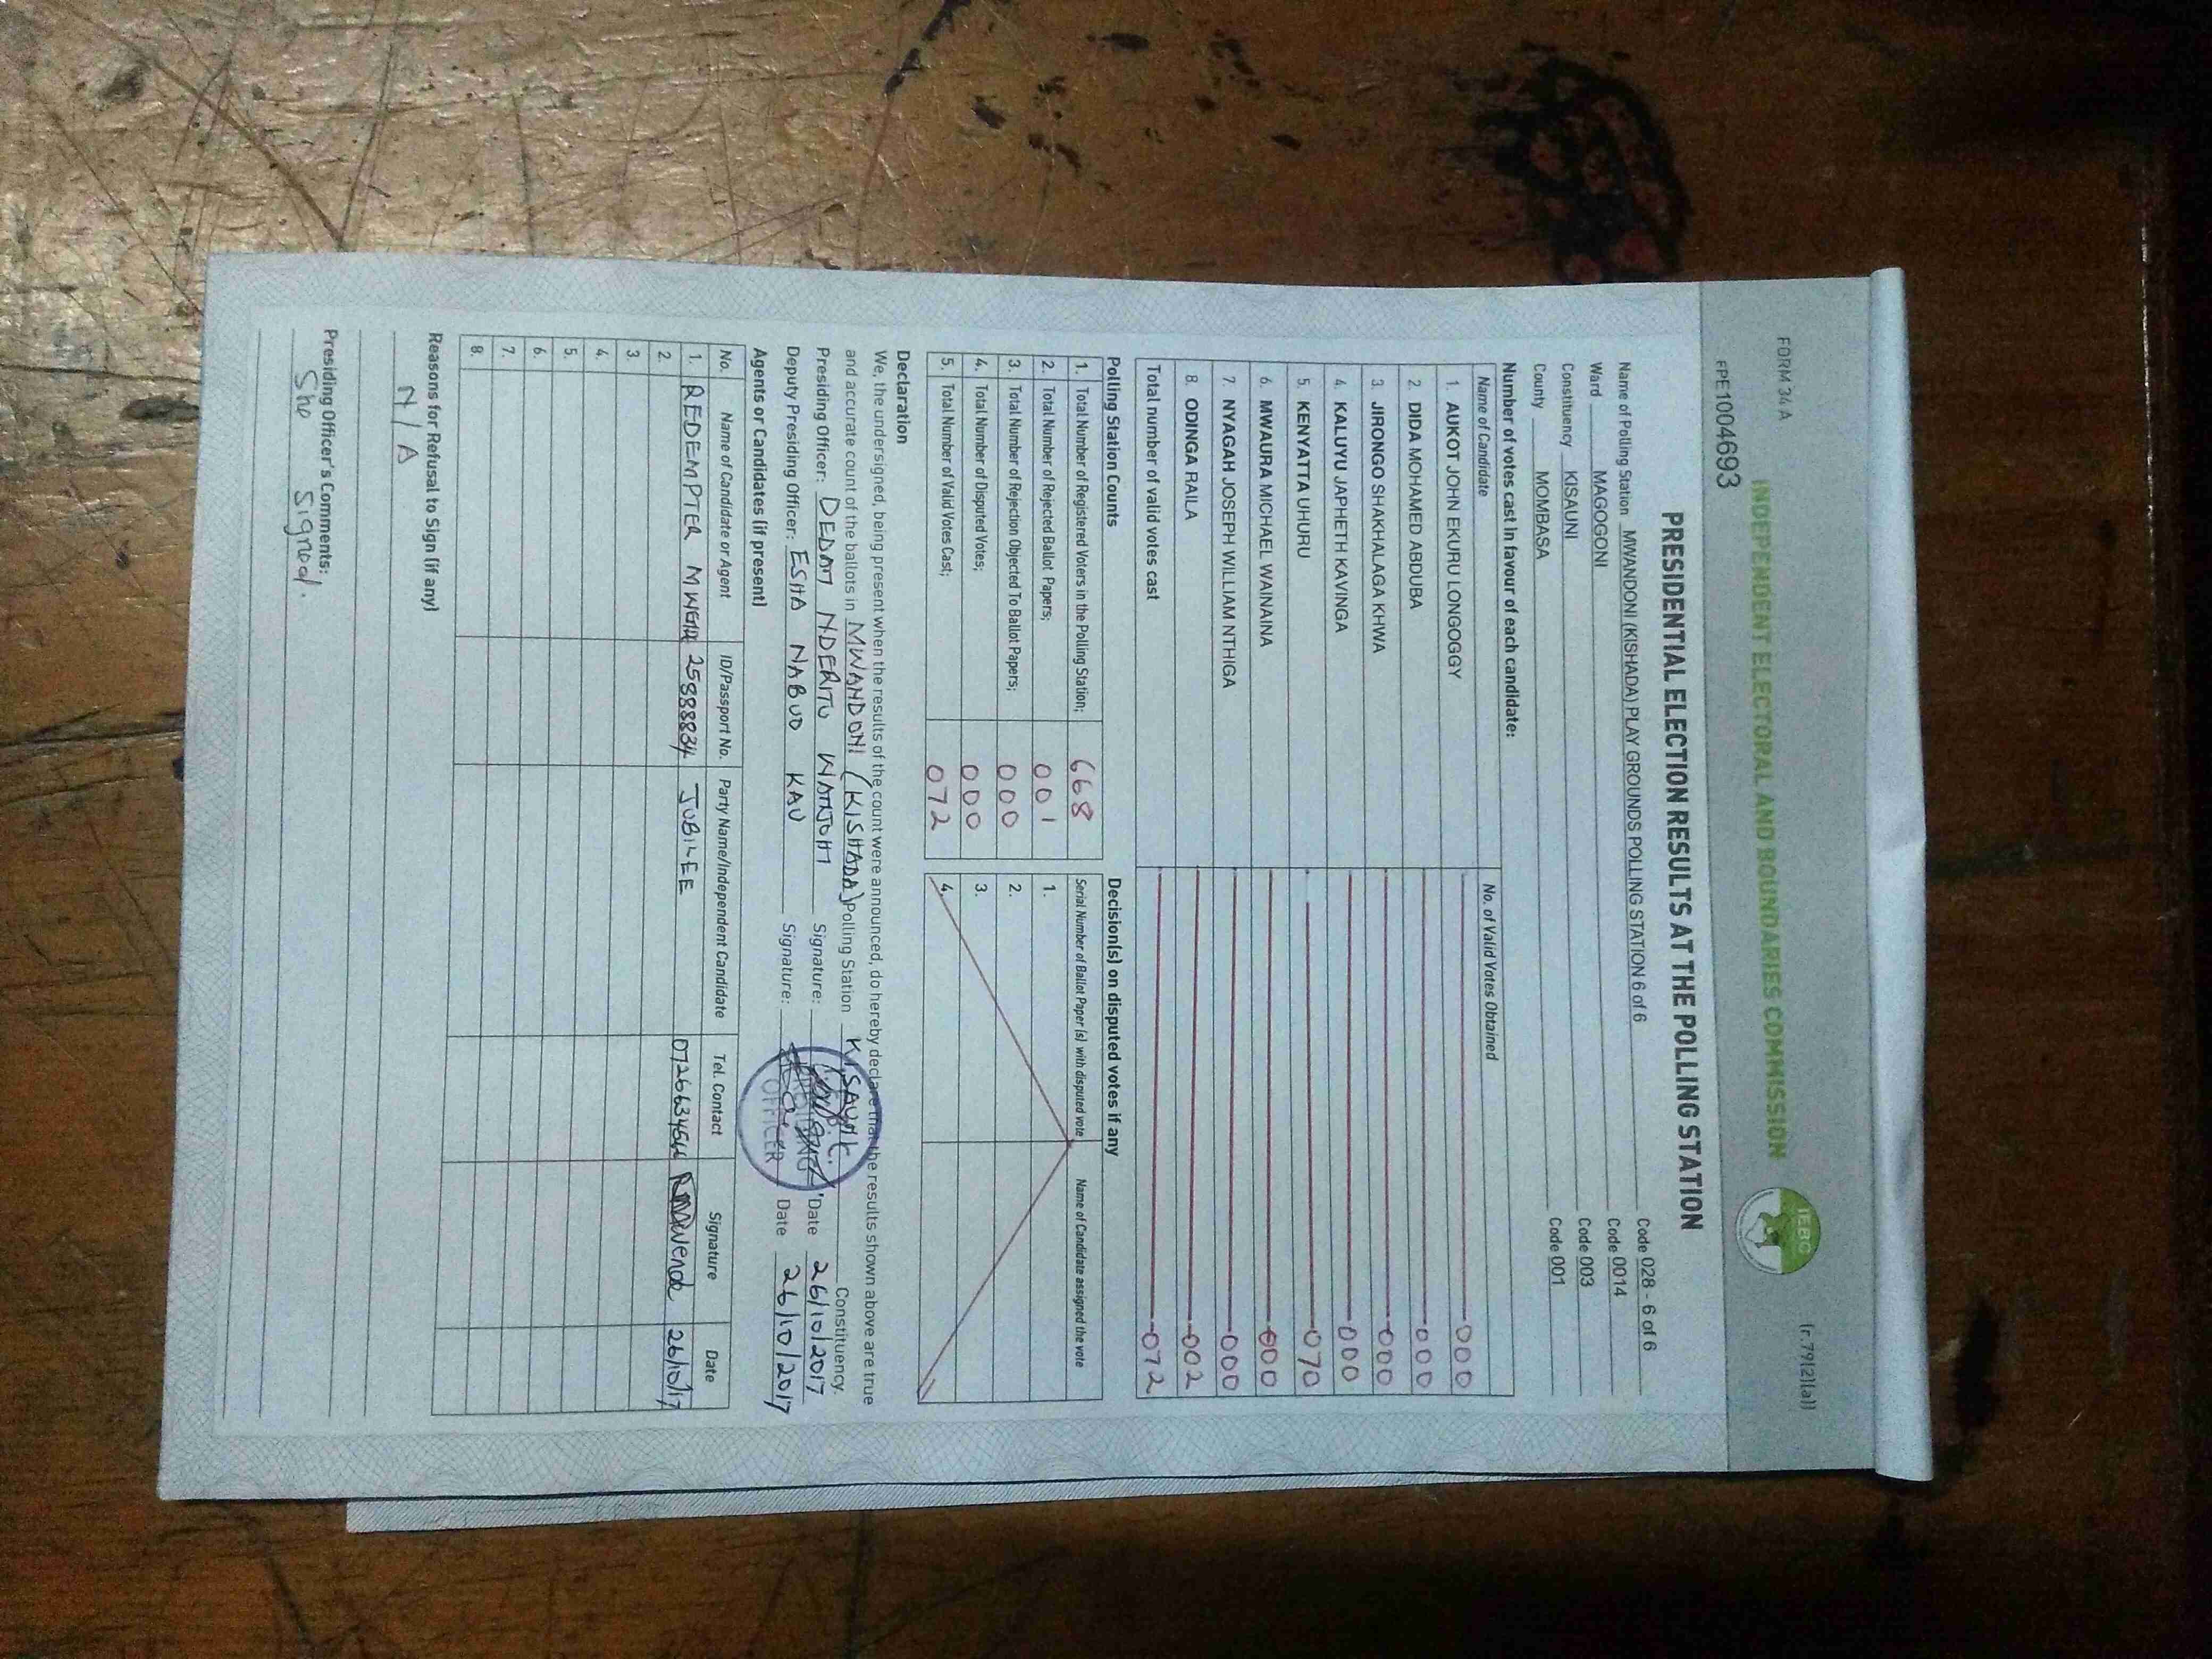 FORM 34 A
(r.79(2)(a))
INDEPENDENT ELECTORAL AND BOUNDARIES COMMISSION
IEBC
PPE1004693
PRESIDENTIAL ELECTION RESULTS AT THE POLLING STATION
Name of Polling Station MWANDONI (KISHADA) PLAY GROUNDS POLLING STATION 6 of 6 Code 028 - 6 of 6
Ward MAGOGONI Code 0014
Constituency KISAUNI Code 003
County MOMBASA Code 001
Number of votes cast in favour of each candidate:
Name of Candidate No. of Valid Votes Obtained
1. AUKOT JOHN EKURU LONGOGGY 000
2. DIDA MOHAMED ABDUBA 000
3. JIRONGO SHAKHALAGA KHWA 000
4. KALUYU JAPHETH KAVINGA 000
5. KENYATTA UHURU 070
6. MWAURA MICHAEL WAINAINA 000
7. NYAGAH JOSEPH WILLIAM NTHIGA 000
8. ODINGA RAILA 002
Total number of valid votes cast 072
Polling Station Counts
1. Total Number of Registered Voters in the Polling Station; 668
2. Total Number of Rejected Ballot Papers; 001
3. Total Number of Rejection Objected To Ballot Papers; 000
4. Total Number of Disputed Votes; 000
5. Total Number of Valid Votes Cast; 072
Decision(s) on disputed votes if any
Serial Number of Ballot Paper (s) with disputed vote Name of Candidate assigned the vote
1.
2.
3.
4.
Declaration
We, the undersigned, being present when the results of the count were announced, do hereby declare that the results shown above are true
and accurate count of the ballots in MWANDONI (KISHADA) Polling Station KISAUNI Constituency.
Presiding Officer: DEDAN NDERITU WATJOHI Signature: Date 26/10/2017
Deputy Presiding Officer: ESHA NABUO KAU Signature: Date 26/10/2017
OFFICER
Agents or Candidates (if present)
No. Name of Candidate or Agent ID/Passport No. Party Name/Independent Candidate Tel. Contact Signature Date
1. REDEMPTER 25888834 JUBILEE 26/10/17
2.
3
4.
5.
6.
7.
8.
Reasons for Refusal to Sign (if any)
N/A
Presiding Officer's Comments:
She signed.